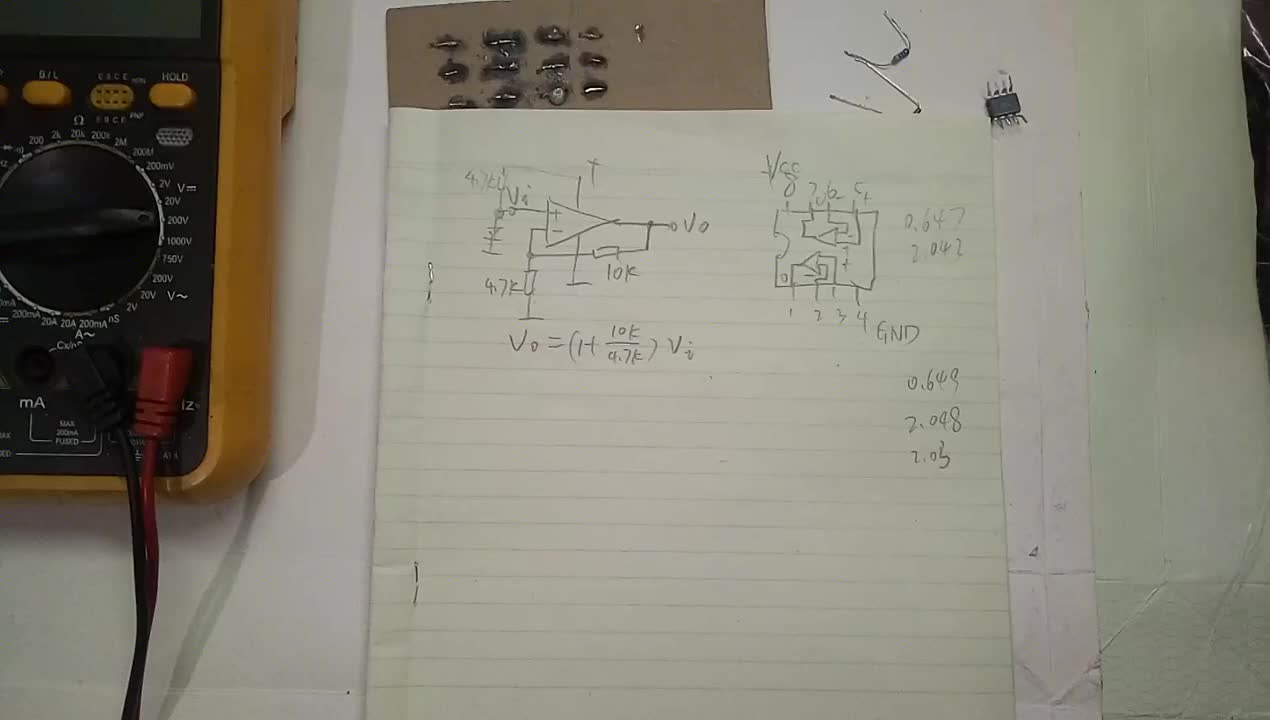 B/L
E B C E
NPN
HOLD
E B C E
PNP
Ω
200
2k
20k
200k
2M
200M
200mV
2V
V
20V
200V
1000V
750V
200V
20V
V~
2V
nS
200mA
A~
20A
20A
200mA
Cx
mA
Hz
MAX
200mA
FUSED
4.7k
Vi
+
−
Vo
10k
4.7k
Vo = (1+ 10k/4.7k) Vi
8
0.647
2.043
1 2 3 4 GND
0.649
2.048
2.03